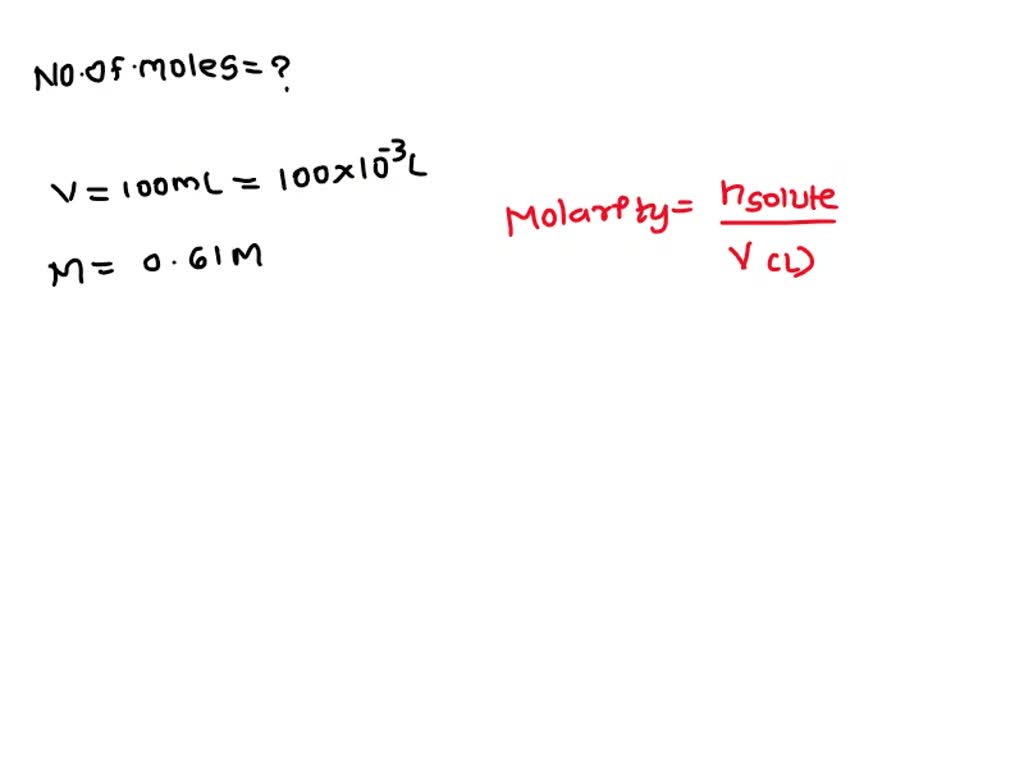 No.of.moles=?
V = 100mL = 100x10⁻³L
M = 0.61M
Molarity = nsolute
V (L)